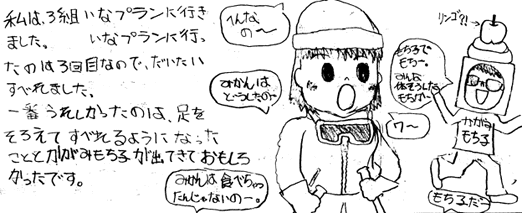 私は、3組いなプランに行き
ました。 いなプランに行っ
たのは3回目なので、だいたい
すべれました。
一番うれしかったのは、足を
そろえてすべれるようになった
こととかがみもち子が出てきておもしろ
かったです。
へんな
の〜
みかんは
どうしたの〜
みかんは食べちゃっ
たんじゃないの〜。
ワ〜
リンゴ?!
もち子で
もち〜。
みんな
体そうしたら
もちが〜
かがみ
もち子
もち子だ〜